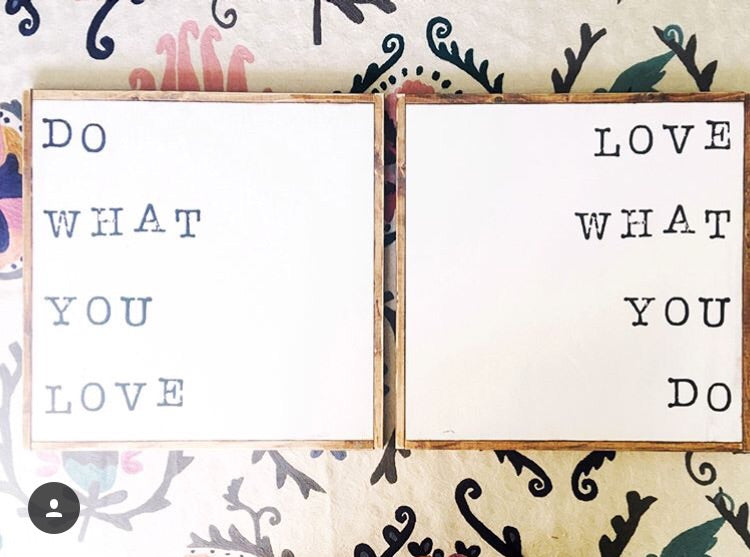 DO
WHAT
YOU
LOVE
LOVE
WHAT
YOU
DO